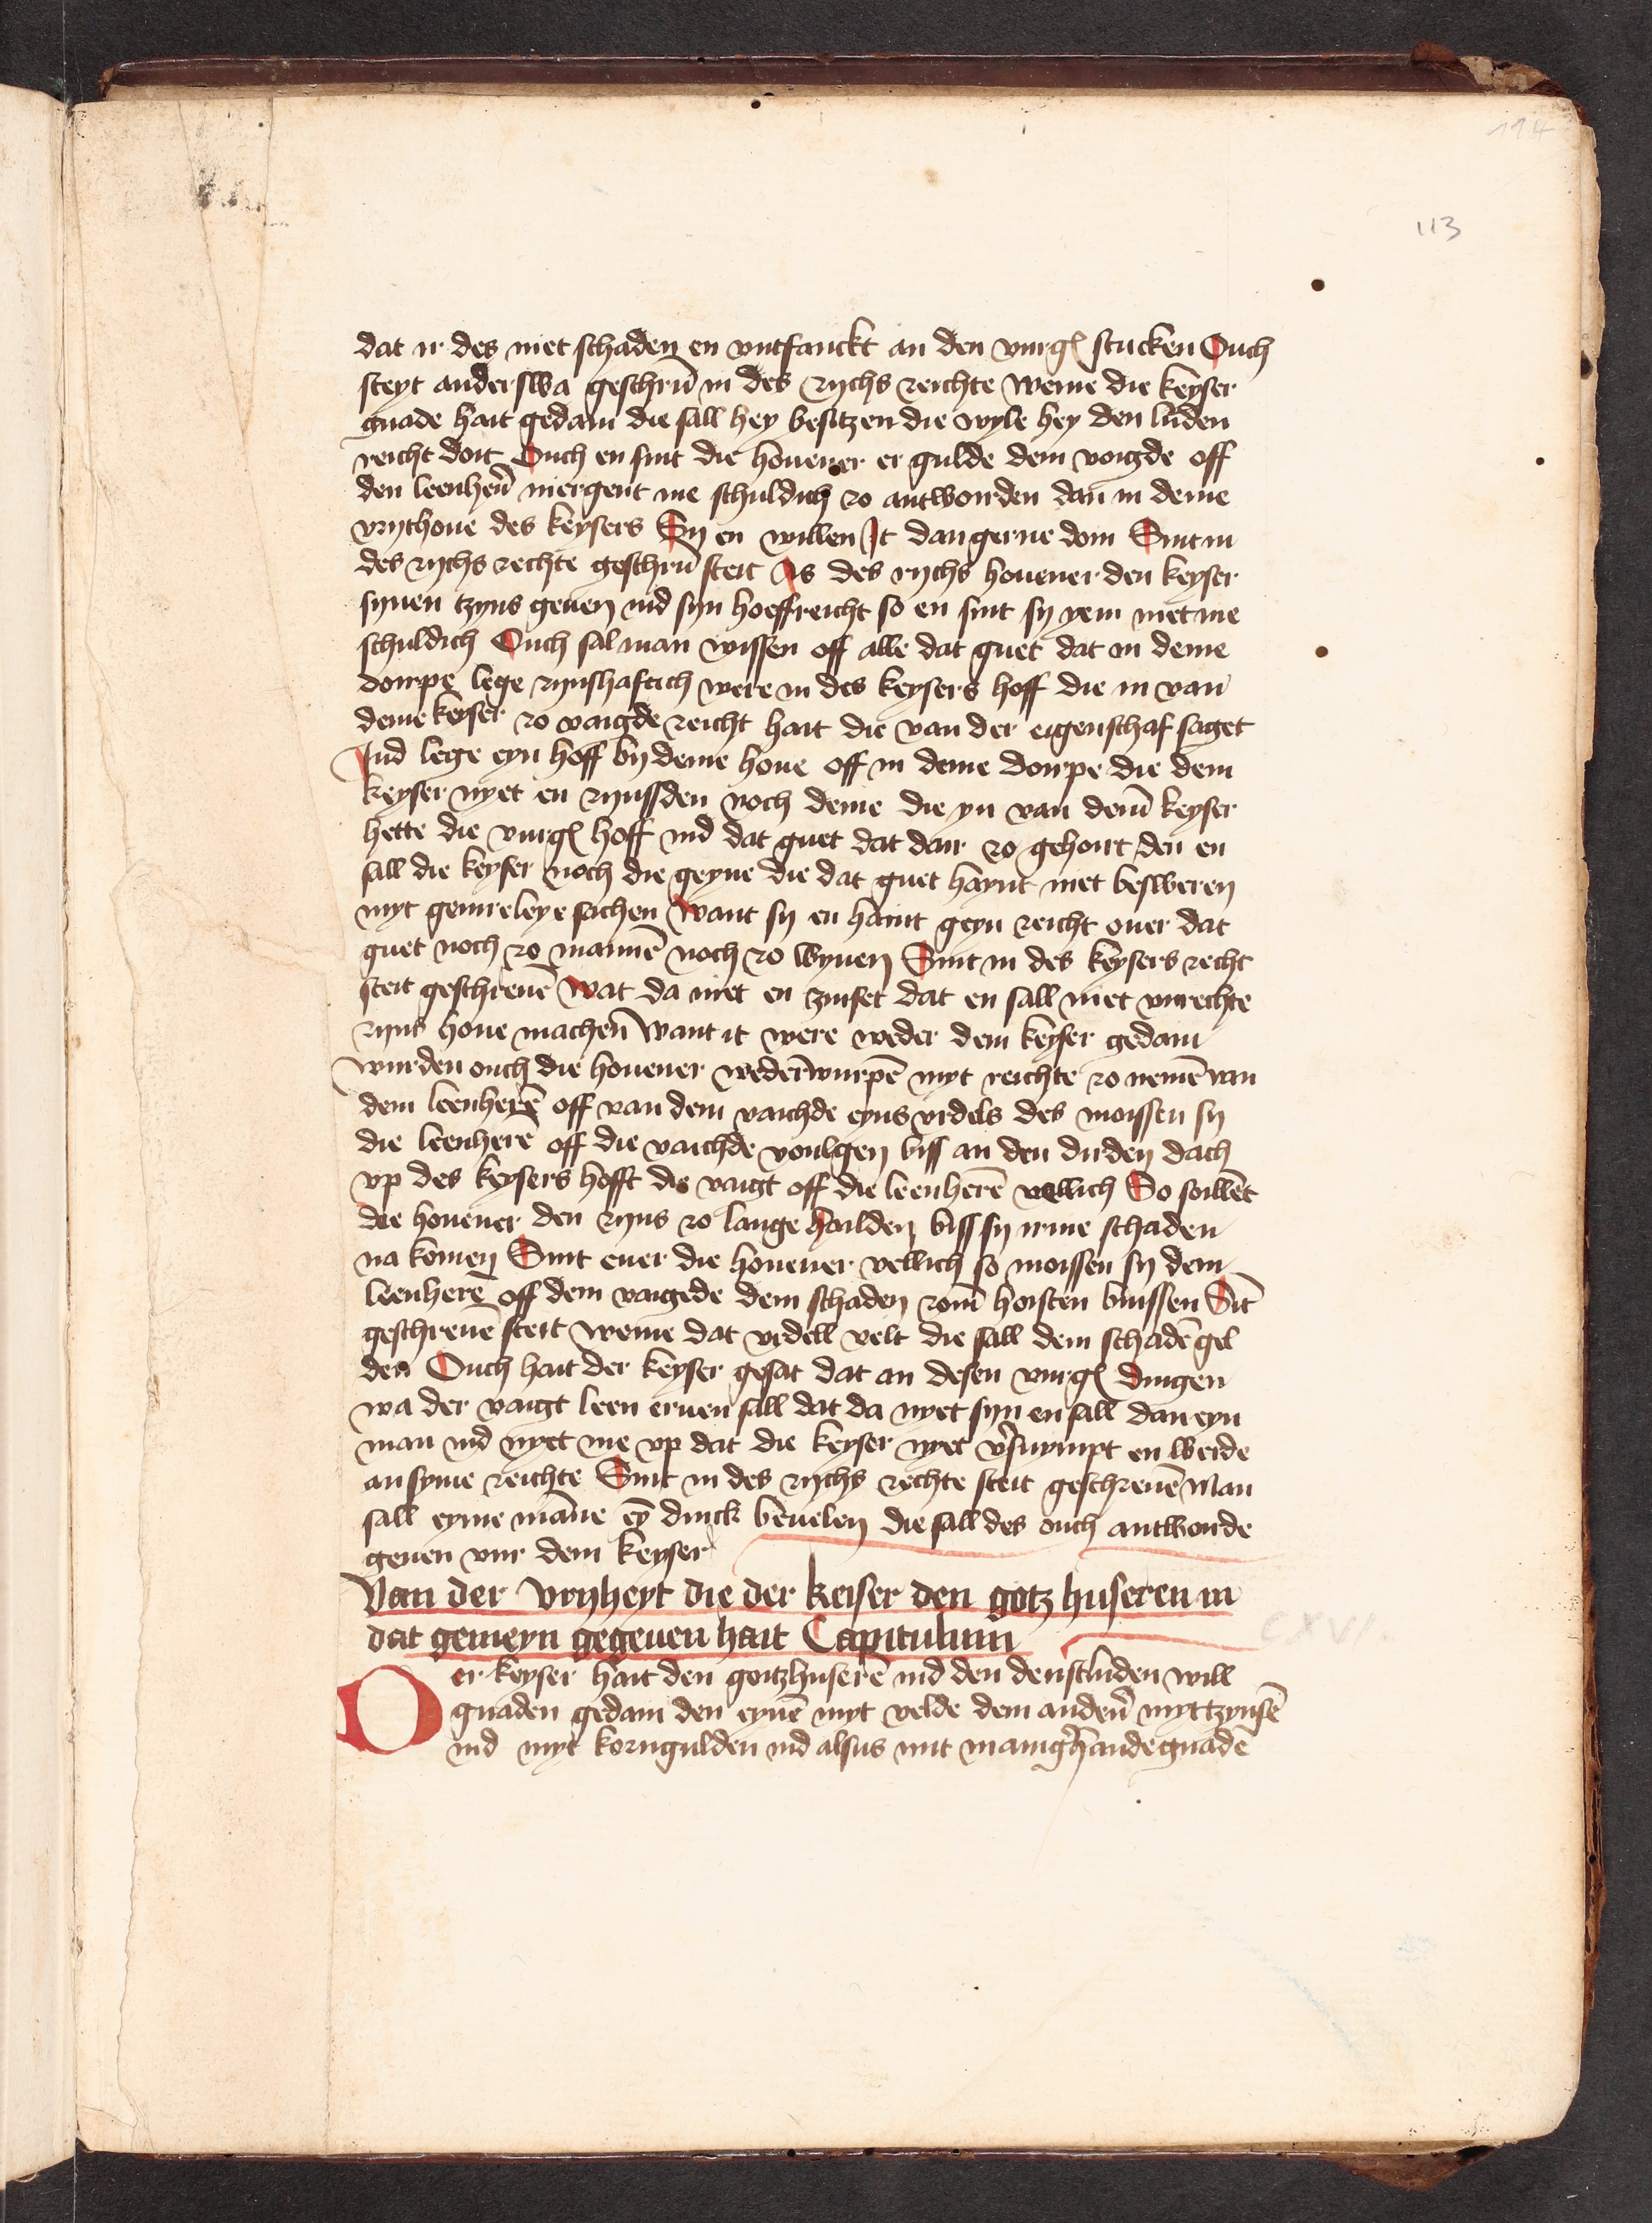 194
113
dat ir des niet schaden en vntfanckt an den vurgͤ stucken Ouch
steyt anderswa geschrūn in des rychs reichte weme die keyser
gnade hait gedain die sall hey besitzen die wyle hey den luden
reicht doit Ouch en sint die houener er gulde dem voigde off
den leenherē niergent me schuldich zo antworden dan in deme
vrythoue des keysers Sy en willen It dan gerne doin Sint in
des rychs rechte geschrūn steit As des rychs houener den keyser
synen tzyns geuen ind syn hoeffreicht so en sint sy yem niet me
schuldich Ouch sal man wissen off alle dat guet dat in deme
dorpe lege zynshaftich were in des keysers hoff die in van
deme keyser zo vaigde reicht hait die van der eigenschaf saget
Ind lege eyn hoff by deme houe off in deme dorpe die dem
keyser nyet en zynssden noch deme die yn van dem keyser
hette die vurgͤ hoff ind dat guet dat dair zo gehoirt den en
sall die keyser noch die geyne die dat guet haynt niet besweren
myt geinreleye sachen want sy en haint geyn reicht ouer dat
guet noch zo mannē noch zo wyuen Sint in des keysers recht
steit geschreuē wat da niet en zinset dat en sall niet vnrechte
zyns houe machen want it were weder dem keyser gedain
wurden ouch die houener wederwurpē myt reichte zo nemē van
dem leenherē off van dem vaichde eyns vrdels des moissen sy
die leenherē off die vaichde voulgen biss an den dirden dach
vp des keysers hofft die vaigt off die leenherē vellich So soillēt
die houener den zyns zo lange hailden biss sy irme schaden
na komen Sint euer die houener vellich so moissen sy dem
leenherē off dem vaigede dem schaden zom hoisten buissen Sīt
geschreuē steit weme dat vrdell velt die sall dem schadē gel
den Ouch hait der keyser gesat dat an desen vurgͤ dingen
wa der vaigt leen eruen sall dat da nyet syn en sall dan eyn
man ind nyet me vp dat die keyser nyet v̓suympt en werde
an syme reichte Sint in des rychs rechte steit geschreuē Man
sall eyme māne eȳ dinck beuelen die sall des ouch antworde
geuen vur dem keyser
Van der vryheyt die der keiser den gotz huseren in
dat gemeyn gegeuen hait Capitulum
CXVI.
Der keyser hait den gotzhuserē ind den denstluden will
gnaden gedain den eynē myt velde dem anderē myt tzynsē
ind myt korngulden ind alsus mit manigh̓ande gnadē